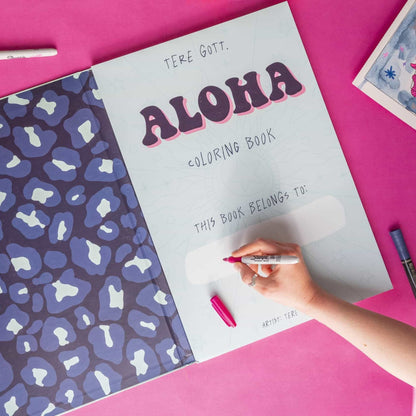 TERE GOTT.
ALOHA
COLORING BOOK
THIS BOOK BELONGS TO:
ARTIST: TERE